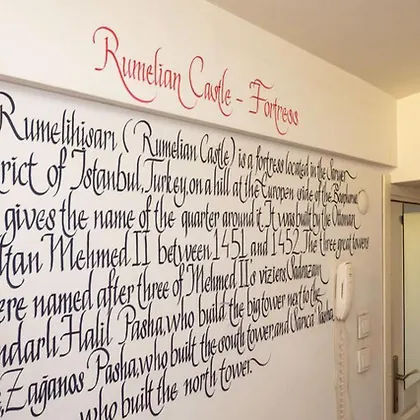 Rumelian Castle - Fortress
Rumelihisarı (Rumelian Castle) is a fortress located in the Sarıyer
rict of Istanbul, Turkey, on a hill at the Europen side of the Bosphorus
gives the name of the quarter around it. It was built by the Ottoman
ltan Mehmed II between 1451 and 1452. The three great towers
ere named after three of Mehmed II's viziers,
ndarlı Halil Pasha, who build the big tower next to the
Zağanos Pasha, who built the south tower and Sarıca Pasha,
who built the north tower.